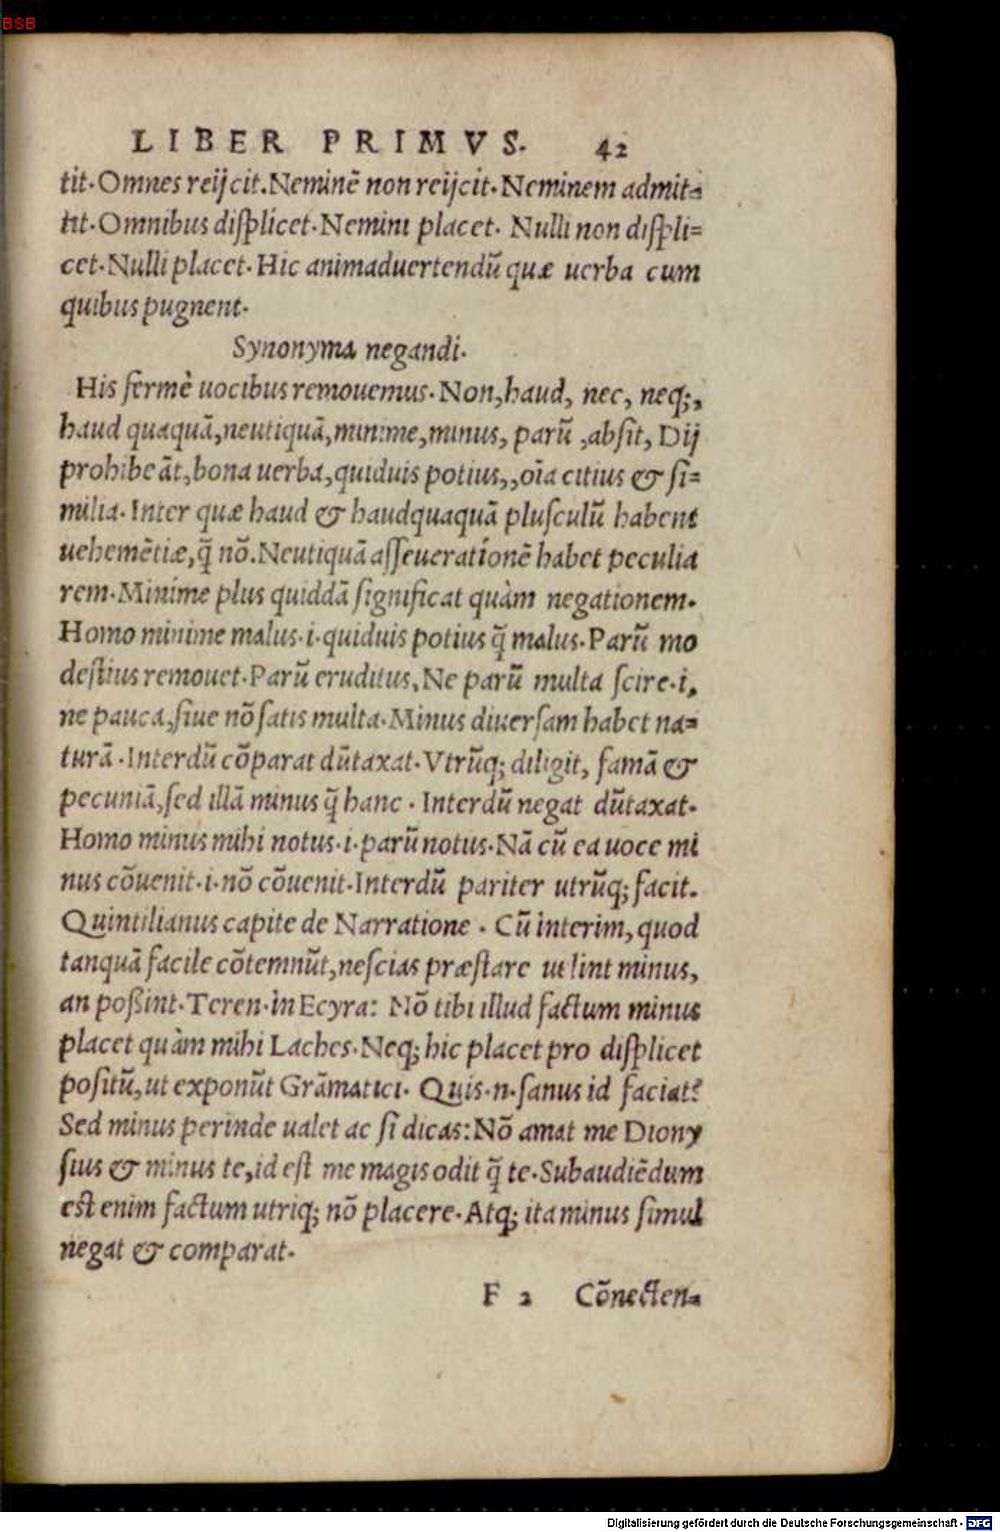 BSB
LIBER PRIMVS. 42
tit. Omnes reijcit. Neminẽ non reijcit. Neminem admit-
tit. Omnibus displicet. Nemini placet. Nulli non displi=
cet. Nulli placet. Hic animaduertendũ quæ uerba cum
quibus pugnent.
Synonyma negandi.
His fermè uocibus remouemus. Non, haud, nec, neq;,
haud quaquã, neutiquã, minime, minus, parũ, absit, Dij
prohibeãt, bona uerba, quiduis potius,, oĩa citius & si=
milia. Inter quæ haud & haudquaquã plusculũ habent
uehemẽtiæ, q̃ nõ. Neutiquã asseuerationẽ habet peculia
rem. Minime plus quiddã significat quàm negationem.
Homo minime malus. i. quiduis potius q̃ malus. Parũ mo
destius remouet. Parũ eruditus, Ne parũ multa scire. i,
ne pauca, siue nõ satis multa. Minus diuersam habet na=
turã. Interdũ cõparat dũtaxat. Vtrũq; diligit, famã &
pecuniã, sed illã minus q̃ hanc. Interdũ negat dũtaxat.
Homo minus mihi notus. i. parũ notus. Nã cũ ea uoce mi
nus cõuenit. i. nõ cõuenit. Interdũ pariter utrũq; facit.
Quintilianus capite de Narratione. Cũ interim, quod
tanquã facile cõtemnũt, nescias præstare uelint minus,
an poßint. Teren. in Ecyra: Nõ tibi illud factum minus
placet quàm mihi Laches. Neq; hic placet pro displicet
positũ, ut exponũt Grãmatici. Quis. n. sanus id faciat?
Sed minus perinde ualet ac si dicas: Nõ amat me Diony
sius & minus te, id est me magis odit q̃ te. Subaudiẽdum
est enim factum utriq; nõ placere. Atq; ita minus simul
negat & comparat.
F 2 Cõnecten-
Digitalisierung gefördert durch die Deutsche Forschungsgemeinschaft - DFG